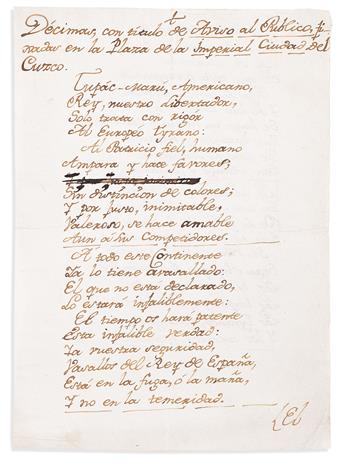 Décimas, con titulo de Aviso al Publico, fi-
xadas en la Plaza de la Imperial Ciudad del
Cuzco.
Tupác-Marú, Americano,
Rey, nuestro Libertador,
Solo trata con rigór
Al Européo Tyrano:
Al Patricio fiel, humano
Ampara y hace favores;
Sin distincion de colores;
Y por justo, inimitable,
Valeroso, se hace amable
Aun a sus Competidores.
A todo este Continente
Ya lo tiene avasallado:
El que no esta declarado,
Lo estará infaliblemente:
El tiempo os hará patente
Esta infalible verdad:
Ya vuestra seguridad,
Vasallos del Rey de España,
Está en la fuga, ó la maña,
Y no en la temeridad.
El